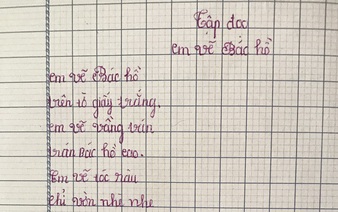 Tập đọc
em vẽ Bác hồ
em vẽ Bác hồ
trên tờ giấy trắng.
em vẽ vầng trán
trán Bác hồ cao.
Em vẽ tóc râu
chỉ vờn nhẹ nhẹ